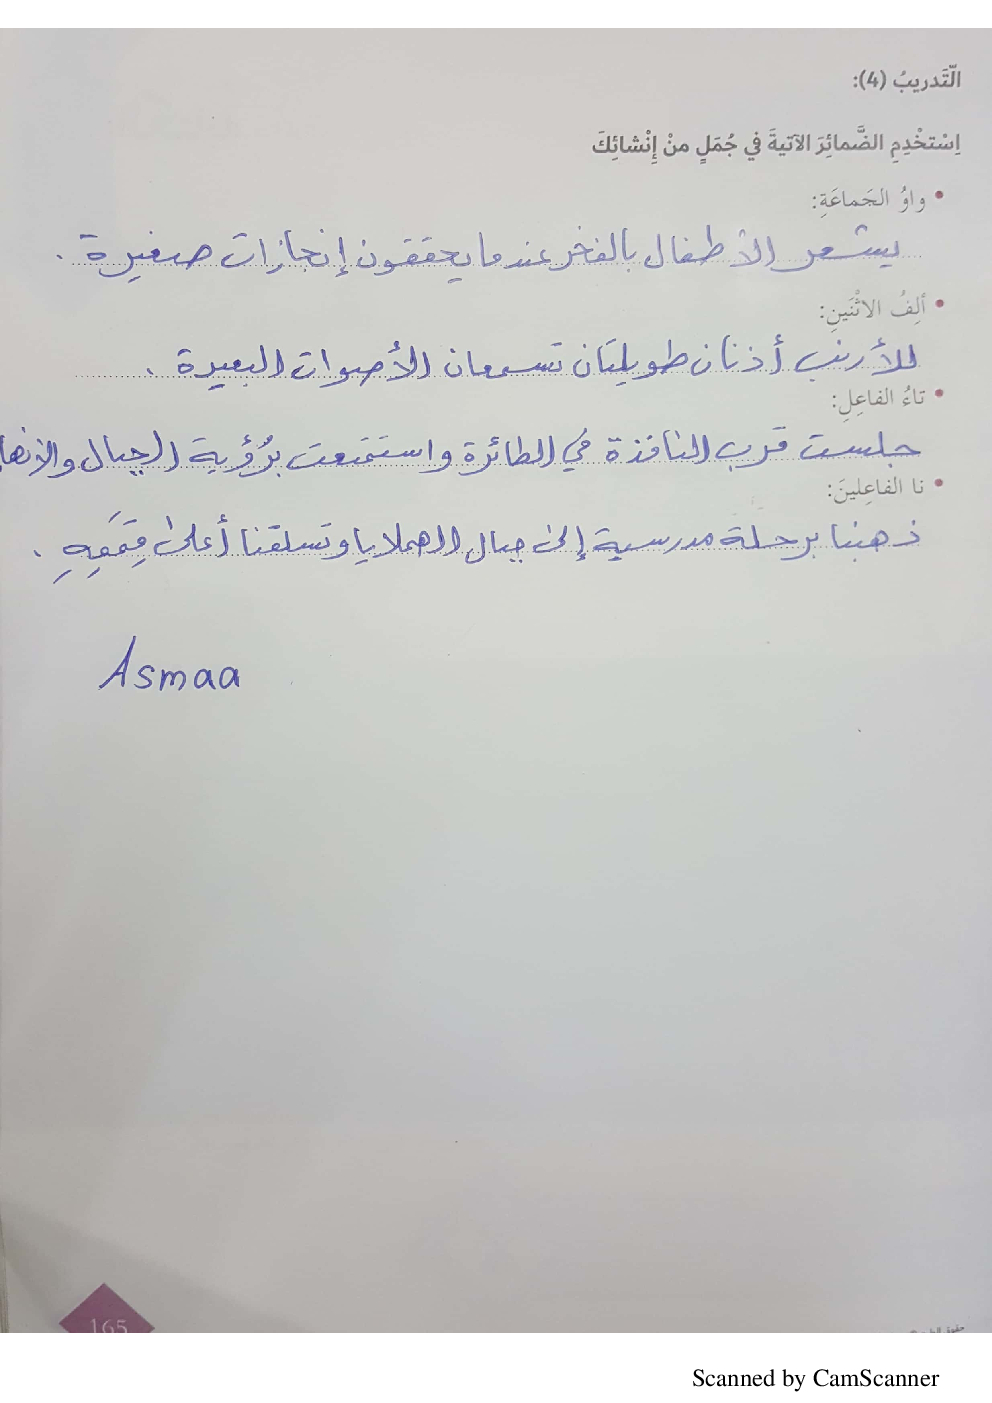 التّدريبُ (4):
اِسْتخْدِمِ الضَّمائِرَ الآتيةَ في جُمَلٍ منْ إِنْشائِكَ
• واوُ الجَماعَةِ:
يشعر الأطفال بالفخر عندما يحققون إنجازات صغيرة .
• ألِفُ الاثْنَينِ:
للأرنب أذنان طويلتان تسمعان الأصوات البعيدة .
• تاءُ الفاعِلِ:
جلست قرب النافذة في الطائرة واستمتعت برُؤية الجبال والأنها
• نا الفاعِلينَ:
ذهبنا برحلة مدرسية إلى جبال الهملايا وتسلقنا أعلى قِمَمِهِ .
Asmaa
165
Scanned by CamScanner